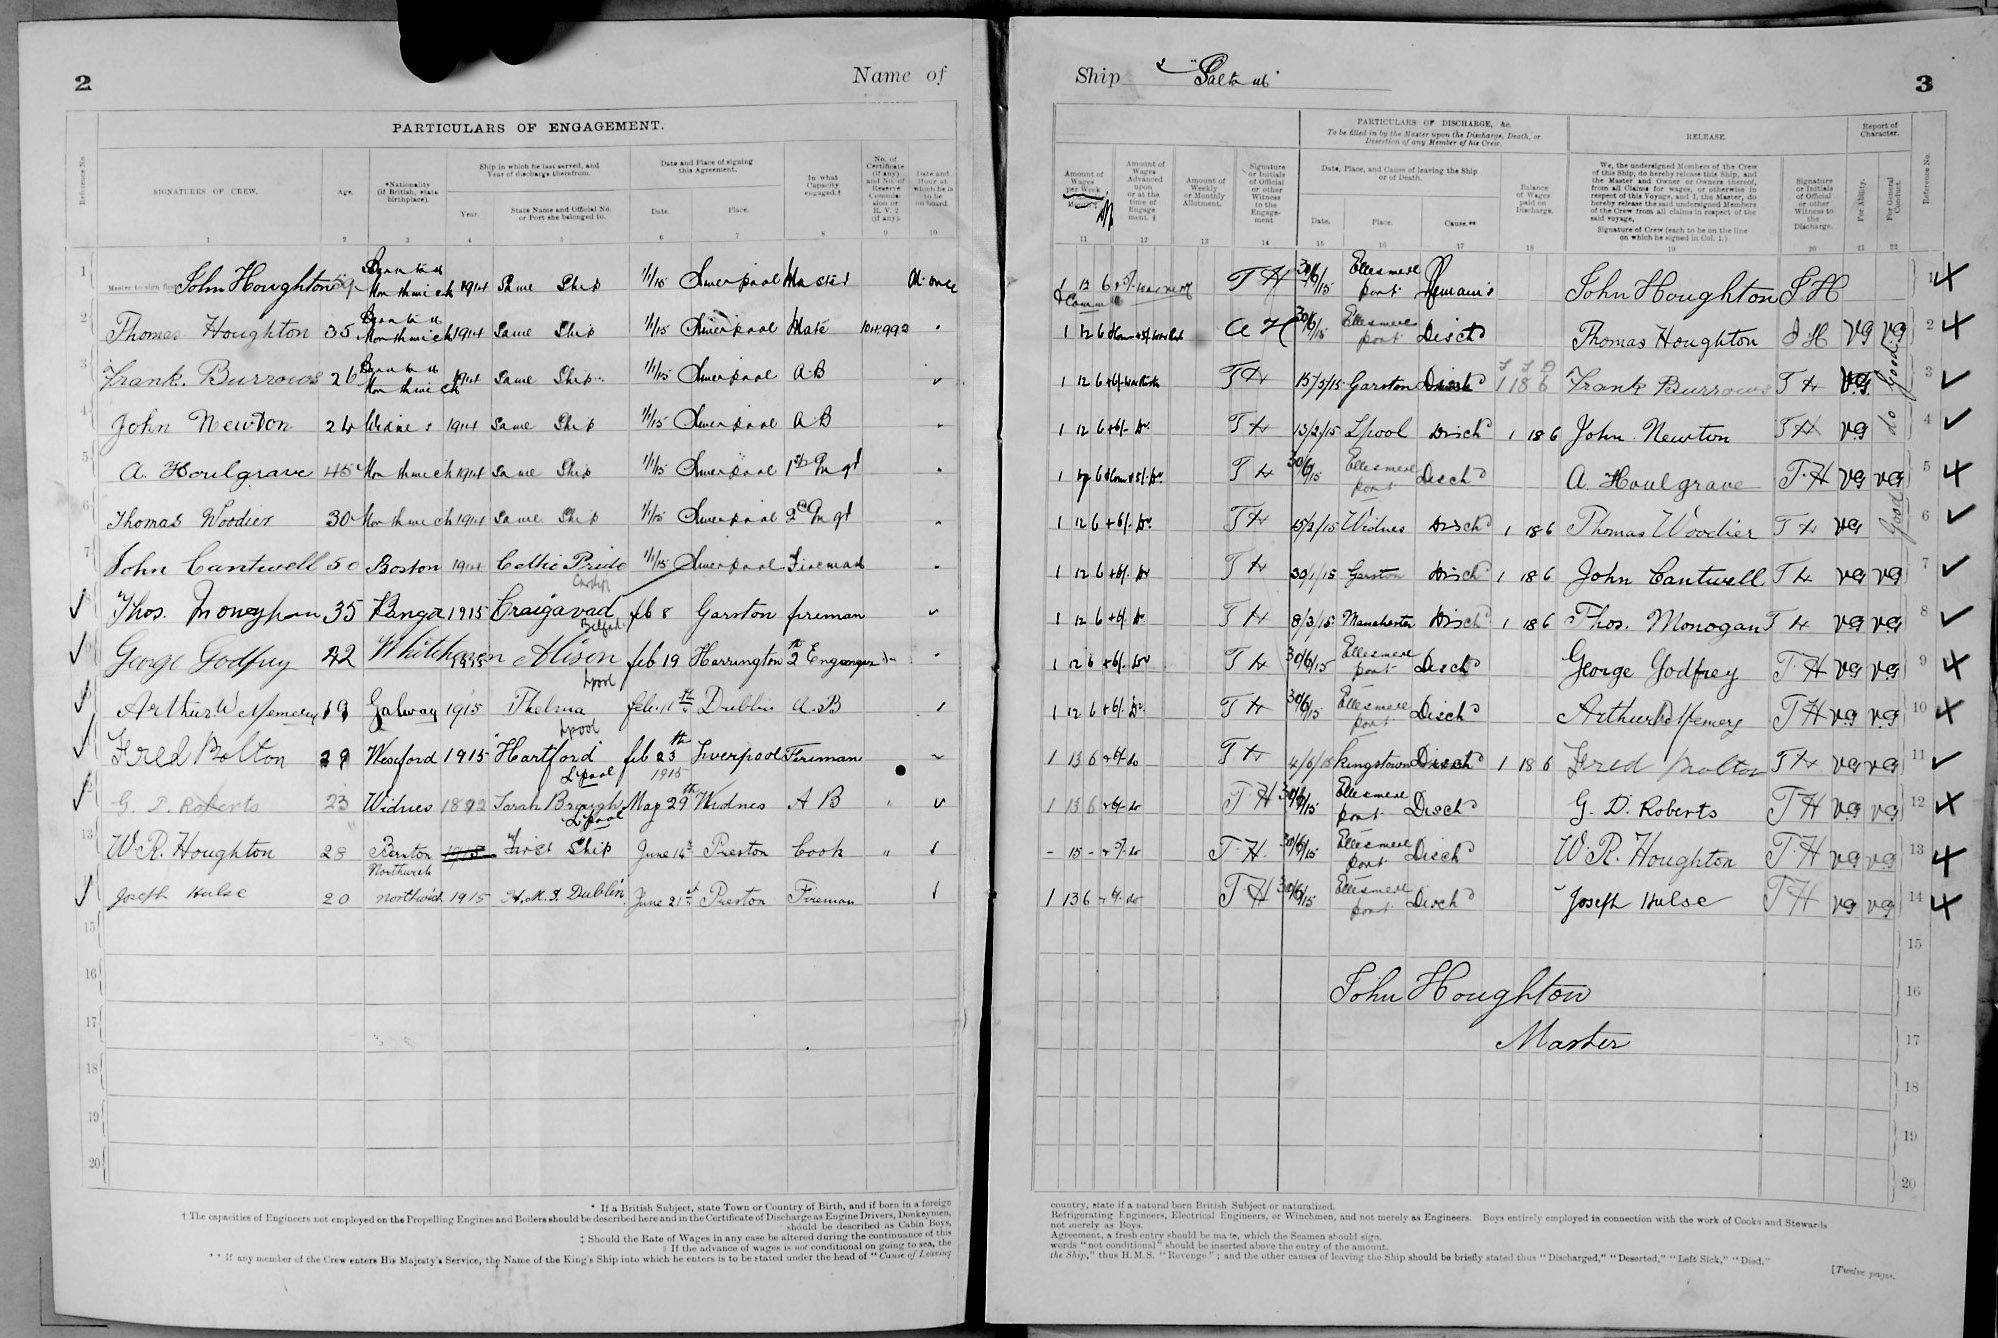 2
Name of
Ship "Saltaub"
3
PARTICULARS OF ENGAGEMENT.
Reference No.
SIGNATURES OF CREW.
Age.
*Nationality
(if British, state
birthplace).
Ship in which he last served, and
Year of discharge therefrom.
Year.
State Name and Official No.
or Port she belonged to.
Date and Place of signing
this Agreement.
Date.
Place.
In what
Capacity
engaged.†
No. of
Certificate
(if any)
and No. of
Reserve
Commis-
sion or
R. V. 2
(if any).
Date and
Hour at
which he is
to be
on board.
1 2 3 4 5 6 7 8 9 10
1 John Houghton Northwich 1914 Same Ship 1/1/15 Liverpool Master At once
2 Thomas Houghton 35 Northwich 1914 Same Ship 1/1/15 Liverpool Mate
3 Frank Burrows 26 Northwich 1914 Same Ship 1/1/15 Liverpool A.B
4 John Newton 24 Widnes 1914 Same Ship 1/1/15 Liverpool A B
5 A. Houlgrave 45 Northwich 1914 Same Ship 1/1/15 Liverpool 1st
6 Thomas Woodier 30 Northwich 1914 Same Ship 1/1/15 Liverpool 2nd
7 John Cantwell 50 Boston 1914 Celtic Pride 1/1/15 Liverpool Fireman
8 Thos. Moneghan 35 1915 Craigavad Belfast feb 8 Garston fireman
9 George Godfrey 42 Whitehaven 1915 Alison Lpool feb 19 Harrington 2
10 Arthur W Memery 19 Galway 1915 Thelma Lpool Dublin A.B
11 Fred Bolton 29 Wexford 1915 Hartford Lpool feb 23th 1915 Liverpool Fireman
12 G. D. Roberts 23 Widnes Sarah Brough Lpool May 29th Widnes A B
13 W. R. Houghton 28 Northwich First Ship June 14th Preston Cook
14 Joseph Hulse 20 Northwich 1915 H.M.S. Dublin June 21st Preston Fireman
15
16
17
18
19
20
* If a British Subject, state Town or Country of Birth, and if born in a foreign
† The capacities of Engineers not employed on the Propelling Engines and Boilers should be described here and in the Certificate of Discharge as Engine Drivers, Donkeymen,
should be described as Cabin Boys,
‡ Should the Rate of Wages in any case be altered during the continuance of this
§ If the advance of wages is not conditional on going to sea, the
** If any member of the Crew enters His Majesty's Service, the Name of the King's Ship into which he enters is to be stated under the head of "Cause of Leaving
Amount of
Wages
per Week
Amount of
Wages
Advanced
upon
or at the
time of
Engage
ment. §
Amount of
Weekly
or Monthly
Allotment.
Signature
or Initials
of Official
or other
Witness
to the
Engage-
ment
PARTICULARS OF DISCHARGE, &c.
To be filled in by the Master upon the Discharge, Death, or
Desertion of any Member of his Crew.
Date, Place, and Cause of leaving the Ship
or of Death.
Date.
Place.
Cause.**
Balance
of Wages
paid on
Discharge.
RELEASE.
We, the undersigned Members of the Crew
of this Ship, do hereby release this Ship, and
the Master and Owner or Owners thereof,
from all Claims for wages, or otherwise in
respect of this Voyage, and I, the Master, do
hereby release the said undersigned Members
of the Crew from all claims in respect of the
said voyage.
Signature of Crew (each to be on the line
on which he signed in Col. 1.)
Signature
or Initials
of Official
or other
Witness to
the
Discharge.
Report of
Character.
For Ability.
For General
Conduct.
Reference No.
11 12 13 14 15 16 17 18 19 20 21 22
1 12 6 T H 30/6/15 Ellesmere port Remains John Houghton J H 1
1 12 6 A H 30/6/15 Ellesmere port Disch'd Thomas Houghton J H VG VG 2
1 12 6 T H 15/5/15 Garston Disch'd 1 18 6 Frank Burrows T H VG Good 3
1 12 6 T H 13/2/15 Lpool Disch'd 1 18 6 John Newton T H VG do 4
T H 30/6/15 Ellesmere port Disch'd A. Houlgrave T.H VG VG 5
1 12 6 T H 15/2/15 Widnes Disch'd 1 18 6 Thomas Woodier T H VG Good 6
1 12 6 T H 30/1/15 Garston Disch'd 1 18 6 John Cantwell T H VG VG 7
1 12 6 T H 8/3/15 Manchester Disch'd 1 18 6 Thos. Monogan T H VG VG 8
1 12 6 T H 30/6/15 Ellesmere port Disch'd George Godfrey T.H VG VG 9
1 12 6 T H 30/6/15 Ellesmere port Disch'd Arthur W Memery T H VG VG 10
1 13 6 T H 4/6/15 Kingstown Disch'd 1 18 6 Fred Bolton T H VG VG 11
1 13 6 T H 30/6/15 Ellesmere port Disch'd G. D. Roberts T H VG VG 12
- 15 - T.H. 30/6/15 Ellesmere port Disch'd W. R. Houghton T.H VG VG 13
1 13 6 T H 30/6/15 Ellesmere port Disch'd Joseph Hulse T H VG VG 14
15
John Houghton 16
Master 17
18
19
20
country, state if a natural born British Subject or naturalized.
Refrigerating Engineers, Electrical Engineers, or Winchmen, and not merely as Engineers. Boys entirely employed in connection with the work of Cooks and Stewards
not merely as Boys.
Agreement, a fresh entry should be made, which the Seamen should sign.
words "not conditional" should be inserted above the entry of the amount.
the Ship," thus H.M.S. "Revenge"; and the other causes of leaving the Ship should be briefly stated thus "Discharged," "Deserted," "Left Sick," "Died."
[Twelve pages.